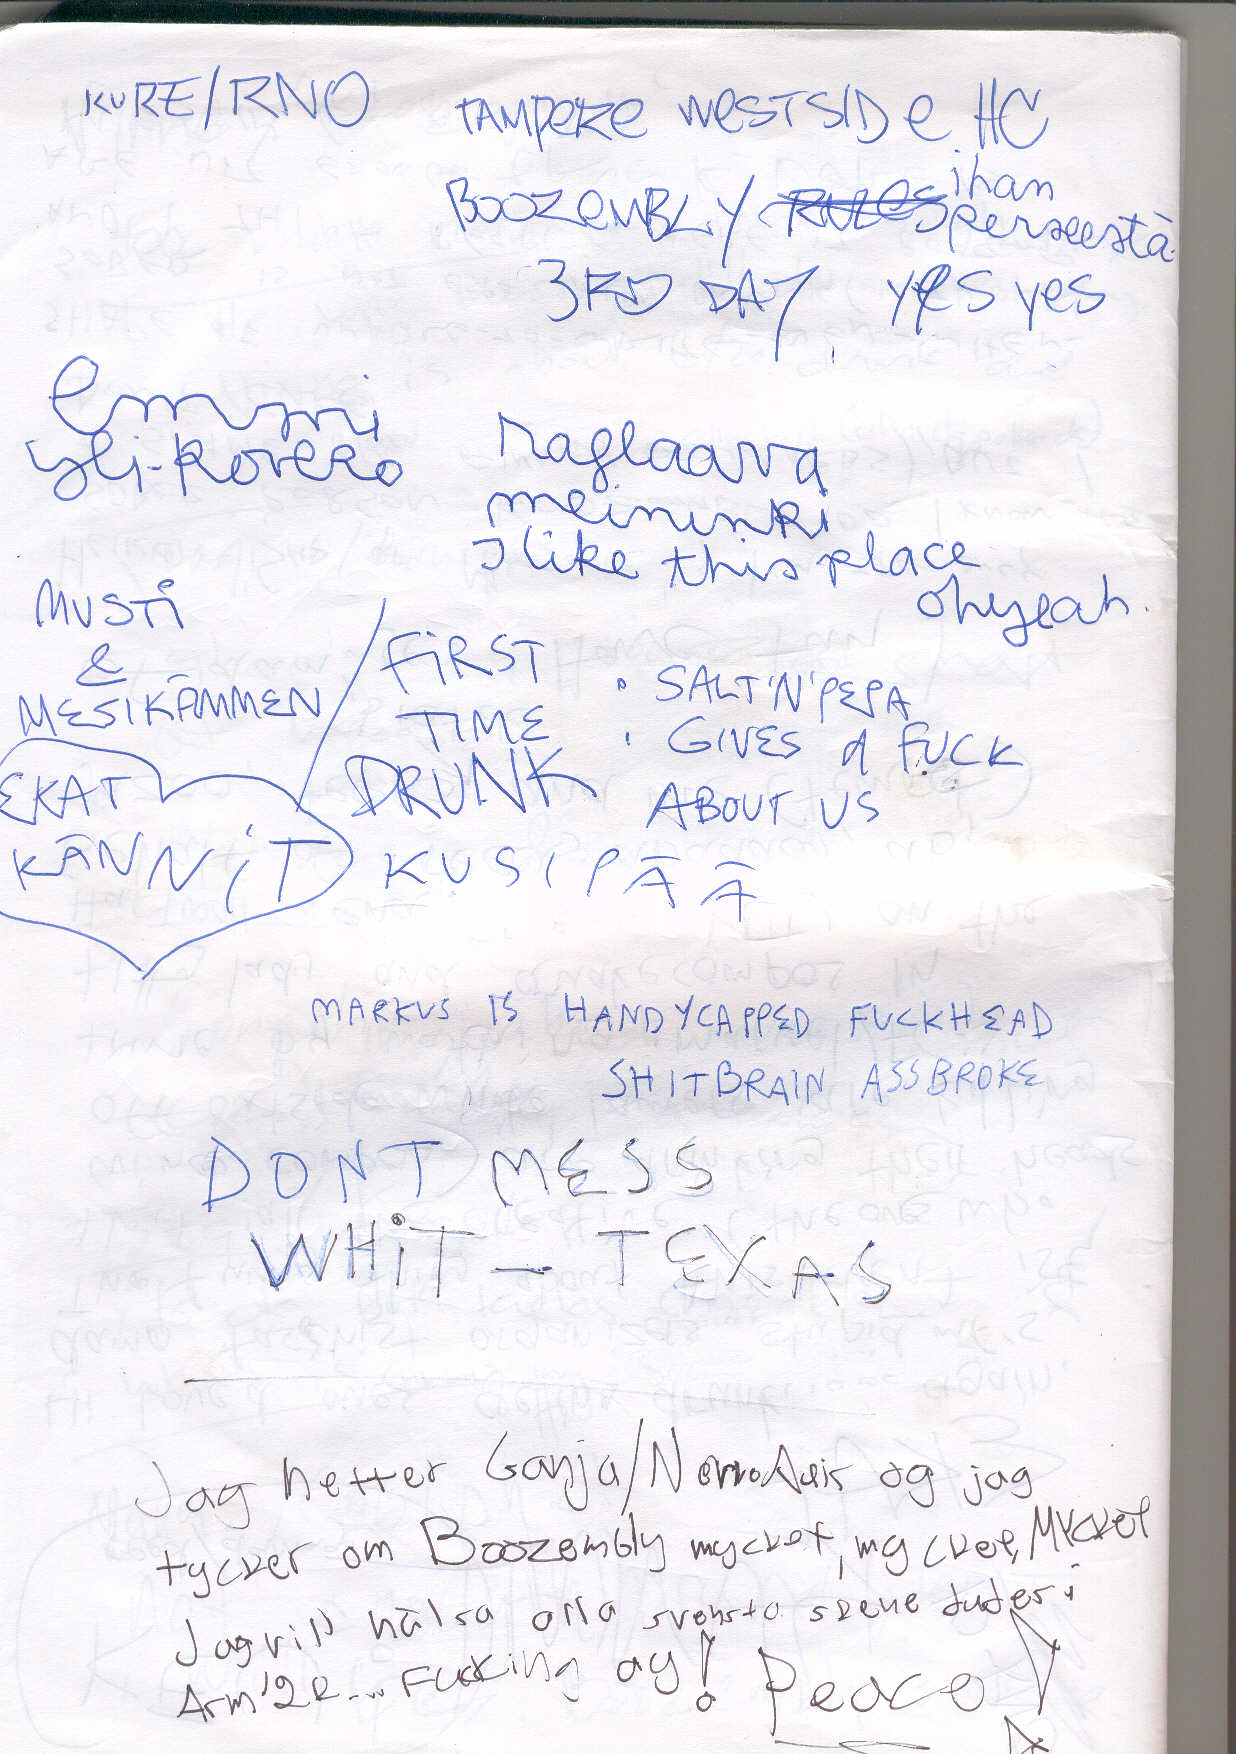 KURE/RNO
TAMPERE WESTSIDE HC
BOOZEMBLY/ RULES ihan
perseestä
3RD DAY, yes yes
emmi
yli-rovero
raglaava
meininki
I like this place
ohyeah.
MUSTI
&
MESIKÄMMEN
EKAT
KÄNNiT
/FiRST
TIME
DRUNK
: SALT'N'PEPA
GIVES A FUCK
ABOUT US
KUSIPÄÄ
MARKUS IS HANDYCAPPED FUCKHEAD
SHITBRAIN ASSBROKE
DONT MESS
WHiT - TEXAS
Jag hetter Ganja/ og jag
tycker om Boozembly mycket, mycket, MYCKET
Jag vill hälsa alla svensta szene duder i
Arm'2k.... Fucking ay!
Peace!